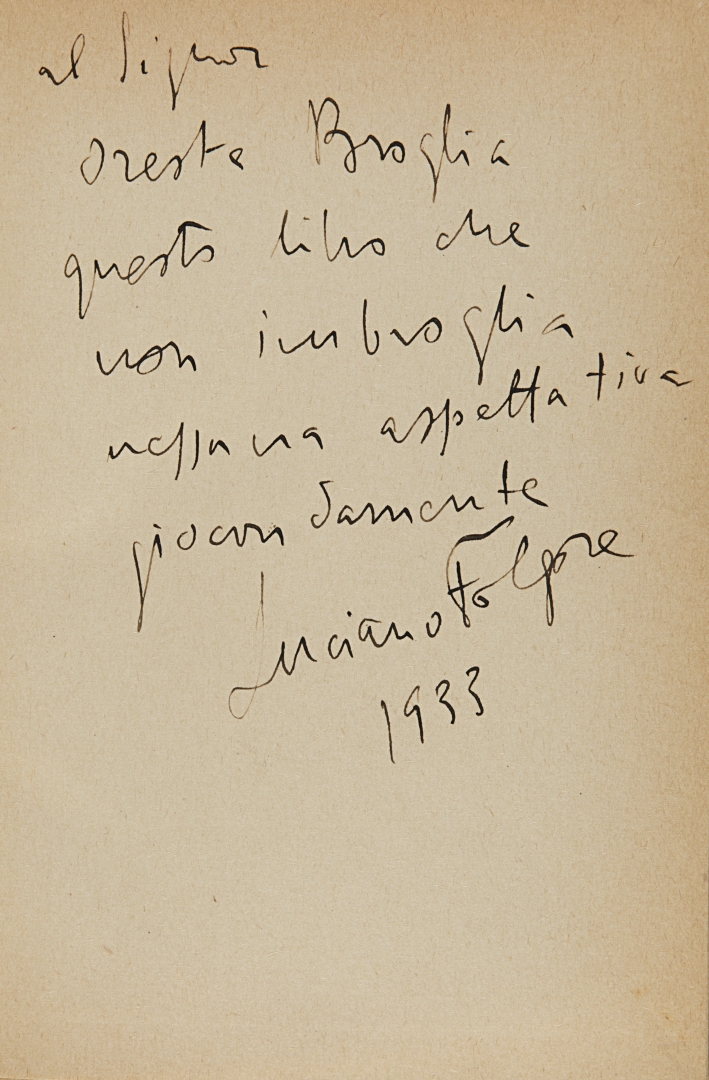 al Signor
Oreste Broglia
questo libro che
non imbroglia
nessuna aspettativa
giocondamente
Luciano Folgore
1933